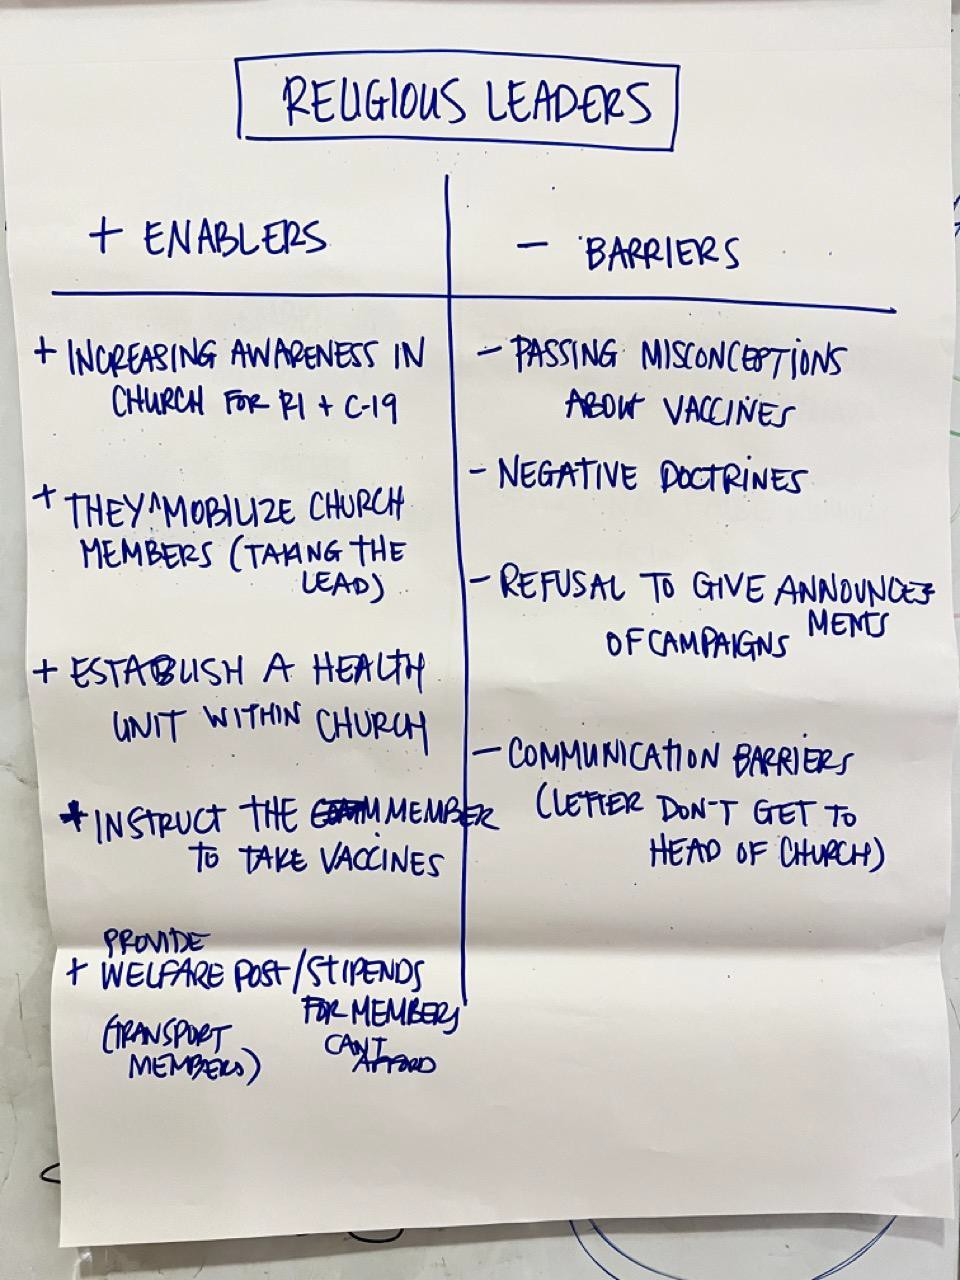 RELIGIOUS LEADERS
+ ENABLERS
- BARRIERS
+ INCREASING AWARENESS IN
CHURCH FOR RI + C-19
+ THEY ^ MOBILIZE CHURCH
MEMBERS (TAKING THE
LEAD)
+ ESTABLISH A HEALTH
UNIT WITHIN CHURCH
+ INSTRUCT THE MEMBER
TO TAKE VACCINES
PROVIDE
+ WELFARE POST/STIPENDS
FOR MEMBERS
(TRANSPORT CAN'T
MEMBERS) AFFORD
- PASSING MISCONCEPTIONS
ABOUT VACCINES
- NEGATIVE DOCTRINES
- REFUSAL TO GIVE ANNOUNCE-
MENTS
OF CAMPAIGNS
- COMMUNICATION BARRIERS
(LETTER DON'T GET TO
HEAD OF CHURCH)